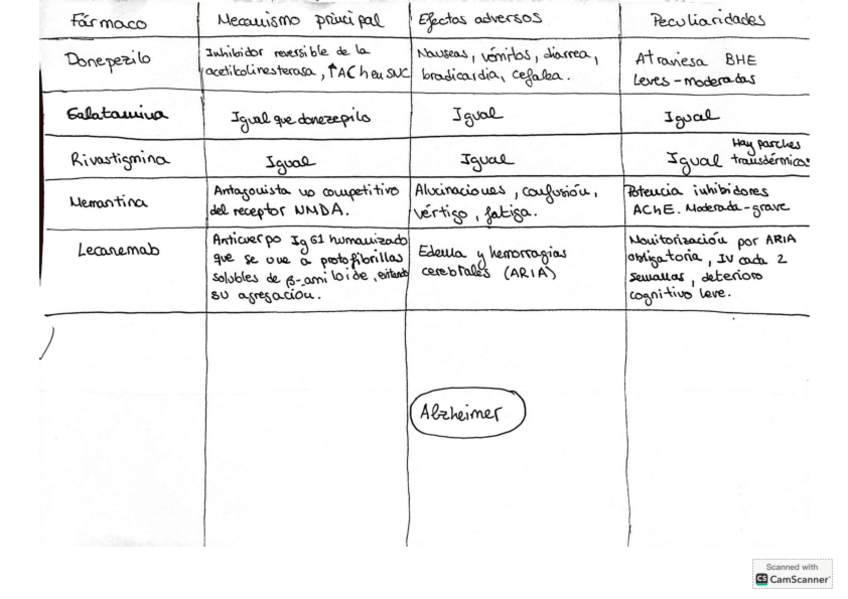 Fármaco
Mecanismo principal
Efectos adversos
Peculiaridades
Donepezilo
Inhibidor reversible de la
acetilcolinesterasa, ↑ACh en SNC
Nauseas, vómitos, diarrea,
bradicardia, cefalea.
Atraviesa BHE
Leves-moderadas
Galatamina
Igual que donezepilo
Igual
Igual
Rivastigmina
Igual
Igual
Igual
Hay parches
transdérmicos
Memantina
Antagonista no competitivo
del receptor NMDA.
Alucinaciones, confusión,
vértigo, fatiga.
Potencia inhibidores
AChE. Moderada-grave
Lecanemab
Anticuerpo IgG1 humanizado
que se une a protofibrillas
solubles de β-amiloide, evitando
su agregación.
Edema y hemorragias
cerebrales (ARIA)
Monitorización por ARIA
obligatoria, IV cada 2
semanas, deterioro
cognitivo leve.
Alzheimer
Scanned with
CS CamScanner